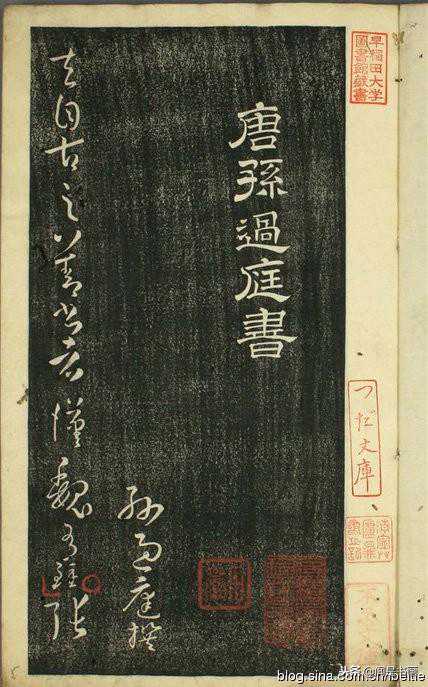 早稲田大学
圖書館蔵書
つだ文庫
唐孫過庭書
孫過庭撰
夫自古之善書者漢魏有鍾張
头条
blog.sina.com.cn